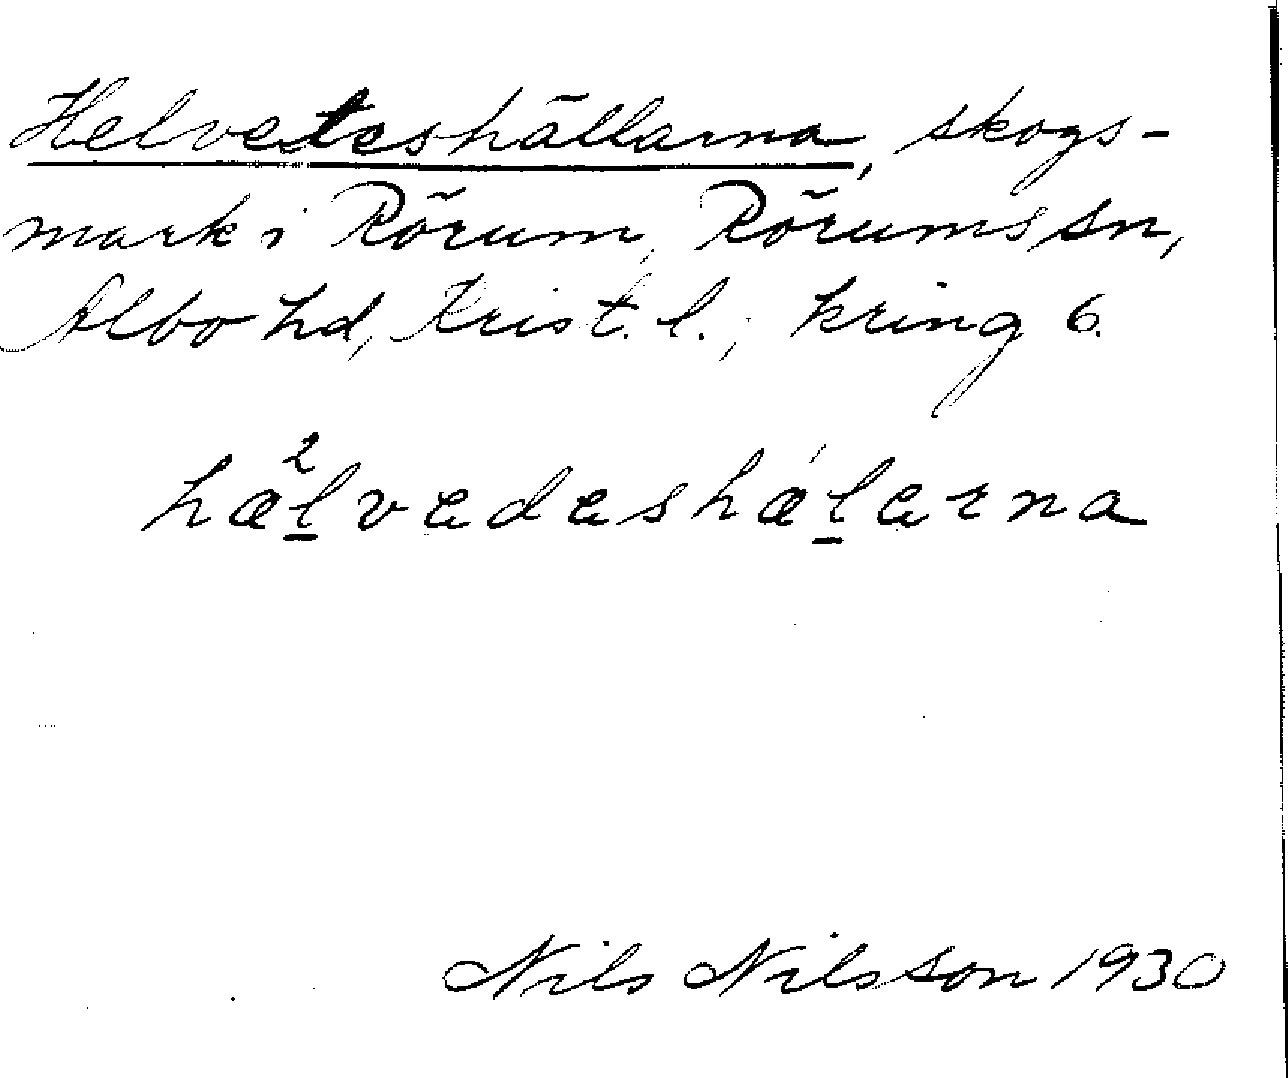 Helveteshällarna, skogs-
mark i Rörum, Rörums sn,
Albo hd, Krist. l.; kring 6.
hæ²l̲vedeshǽl̲erna
Nils Nilsson 1930